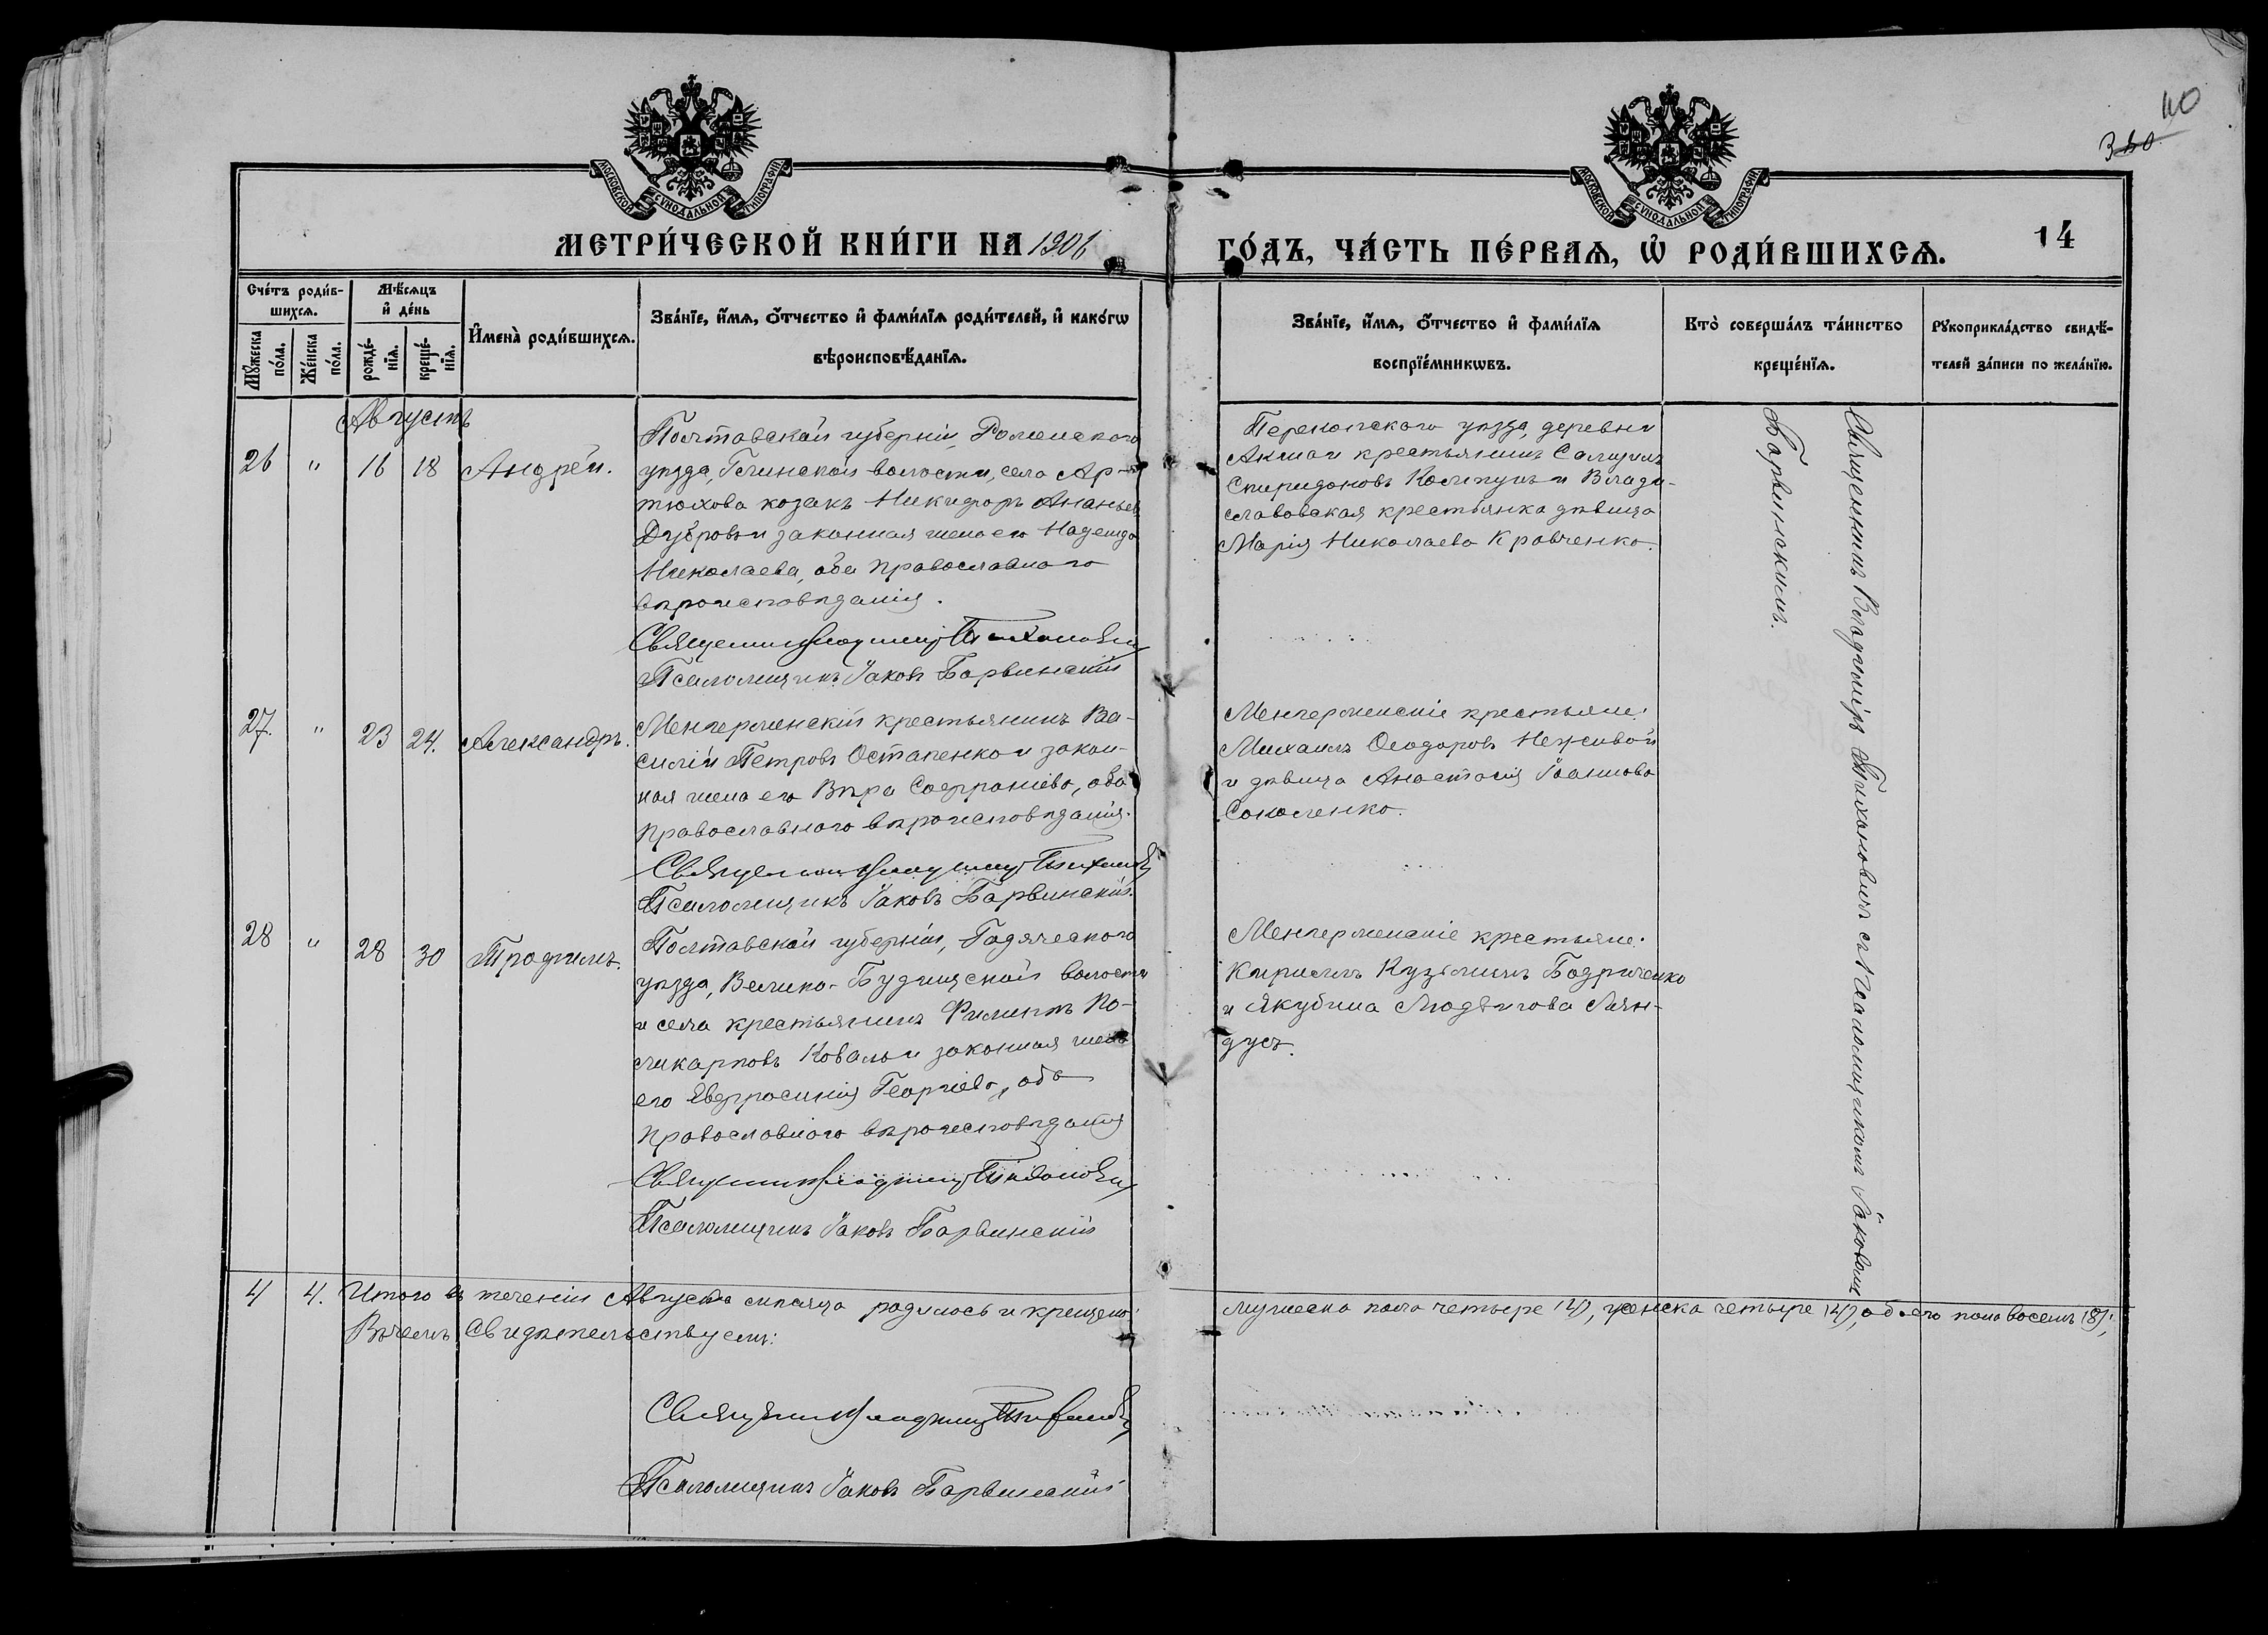 110
380
МОСКОВСКОЙ СѴНОДАЛЬНОЙ ТИПОГРАФІИ
МОСКОВСКОЙ СѴНОДАЛЬНОЙ ТИПОГРАФІИ
МЕТРИ́ЧЕСКОЙ КНИ́ГИ НА 1906
ГО́ДЪ, ЧА́СТЬ ПЕ́РВАѦ, Ѡ҆ РОДИ́ВШИХСѦ.
14
Сче́тъ роди́в-
шихсѧ.
Мꙋ́жеска
по́ла.
Же́нска
по́ла.
Мѣ́сѧцъ
и҆ де́нь
рожде́-
нїѧ.
креще́-
нїѧ.
И҆мена̀ роди́вшихсѧ.
Зва́нїе, и҆́мѧ, ѻ҆́тчество и҆ фами́лїѧ роди́телей, и҆ како́гѡ
вѣроисповѣ́данїѧ.
Зва́нїе, и҆́мѧ, ѻ҆́тчество и҆ фами́лїѧ
воспрїе́мникѡвъ.
Кто̀ соверша́лъ та́инство
креще́нїѧ.
Рꙋкоприкла́дство свидѣ́-
телей за́писи по жела́нїю.
Августъ
26 " 16 18 Андрей.
Полтавской губерніи, Роменского
уѣзда, Глинской волости, села Ар-
тюхова козакъ Никифоръ Ананьевъ
Дубровъ и законная жена его Надежда
Николаева, оба православного
вѣроисповѣданія.
Священникъ Владиміръ Тихановичъ
Псаломщикъ Іаковъ Барвинскій
Перекопского уѣзда, деревни
крестьянинъ
Спиридоновъ и Влади-
славовская крестьянка дѣвица
Марія Николаева Кравченко.
27. " 23 24. Александръ.
Менгерменскій крестьянинъ Ва-
силій Петровъ Остапенко и закон-
ная жена его Вѣра Софроніева, оба
православного вѣроисповѣданія.
Священникъ Владиміръ Тихановичъ
Псаломщикъ Іаковъ Барвинскій.
Менгерменскіе крестьяне:
Михаилъ Ѳеодоровъ Неживой
и дѣвица Анастасія Іоаннова
Соколенко.
28 " 28 30 Трофимъ.
Полтавской губерніи, Гадяческого
уѣзда, Велико-Будищской волости
и села крестьянинъ Филиппъ По-
ликарповъ Коваль и законная жена
его Евфросинія Георгіева, оба
православного вѣроисповѣданія
Священникъ Владиміръ Тихановичъ
Псаломщикъ Іаковъ Барвинскій
Менгерменскіе крестьяне:
Кириллъ Кузьминъ Бодриченко
и Якубина Людвигова Лян-
дусъ.
Священникъ Владиміръ Тихановичъ съ псаломщикомъ Іаковомъ
Барвинскимъ.
4 4. Итого въ теченіи Августа мѣсяца родилось и крещено:
мужеска пола четыре (4), женска четыре (4), обоего пола восемь (8);
Въ чемъ свидѣтельствуемъ:
Священникъ Владиміръ Тихановичъ
Псаломщикъ Іаковъ Барвинскій